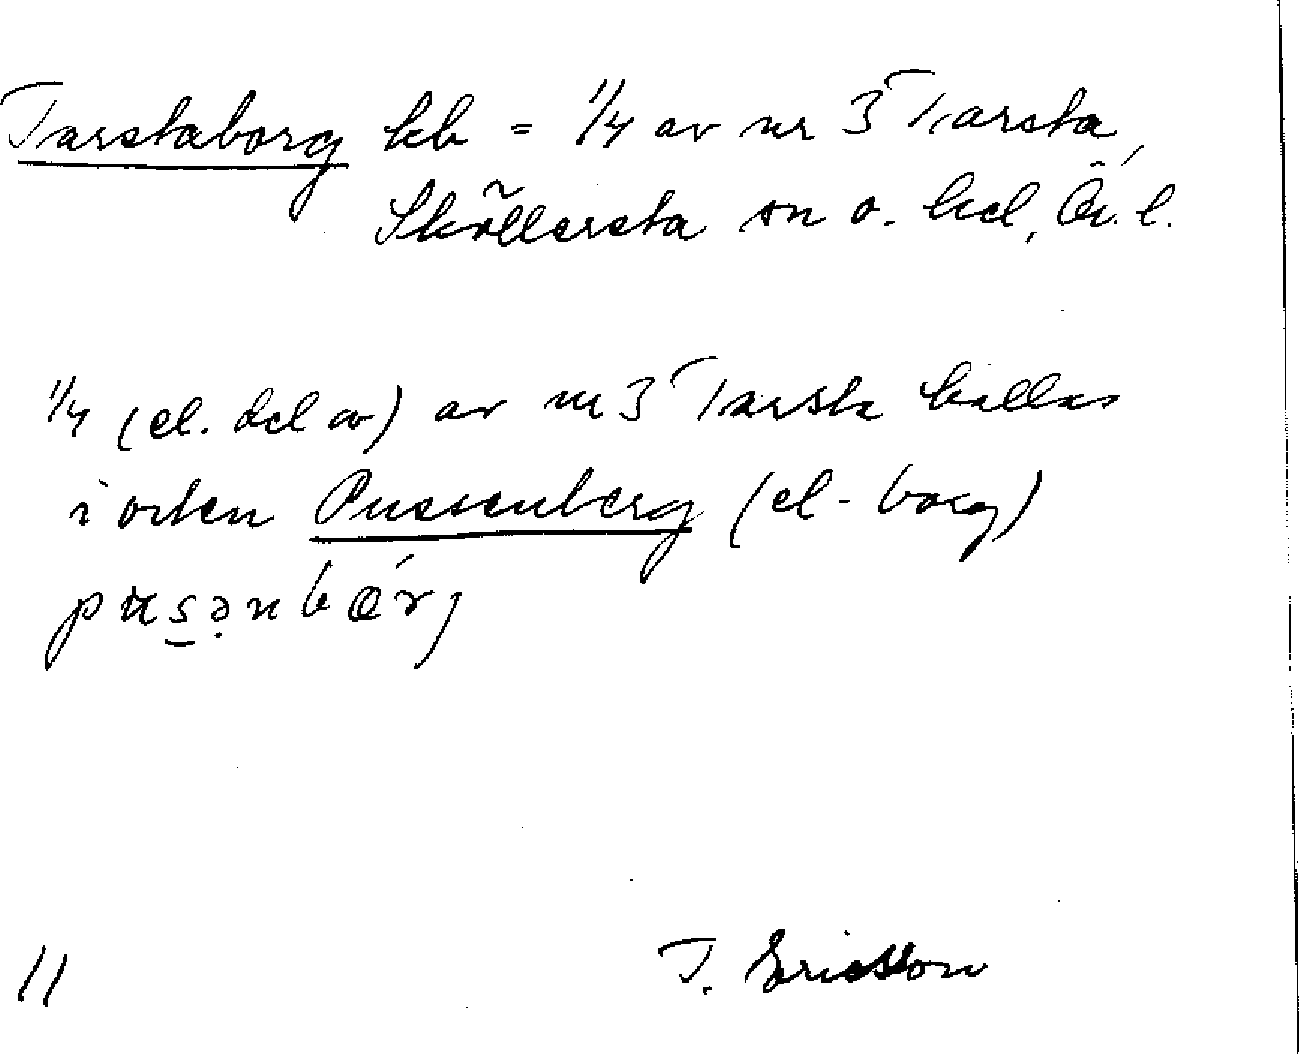 Tarstaborg hb = 1/4 av nr 3 Tarsta,
Sköllersta sn o. hd, Ör. l.
1/4 (el. del av) av nr 3 Tarsta kallas
i orten Pussenberg (el - borg)
11
T. Ericsson